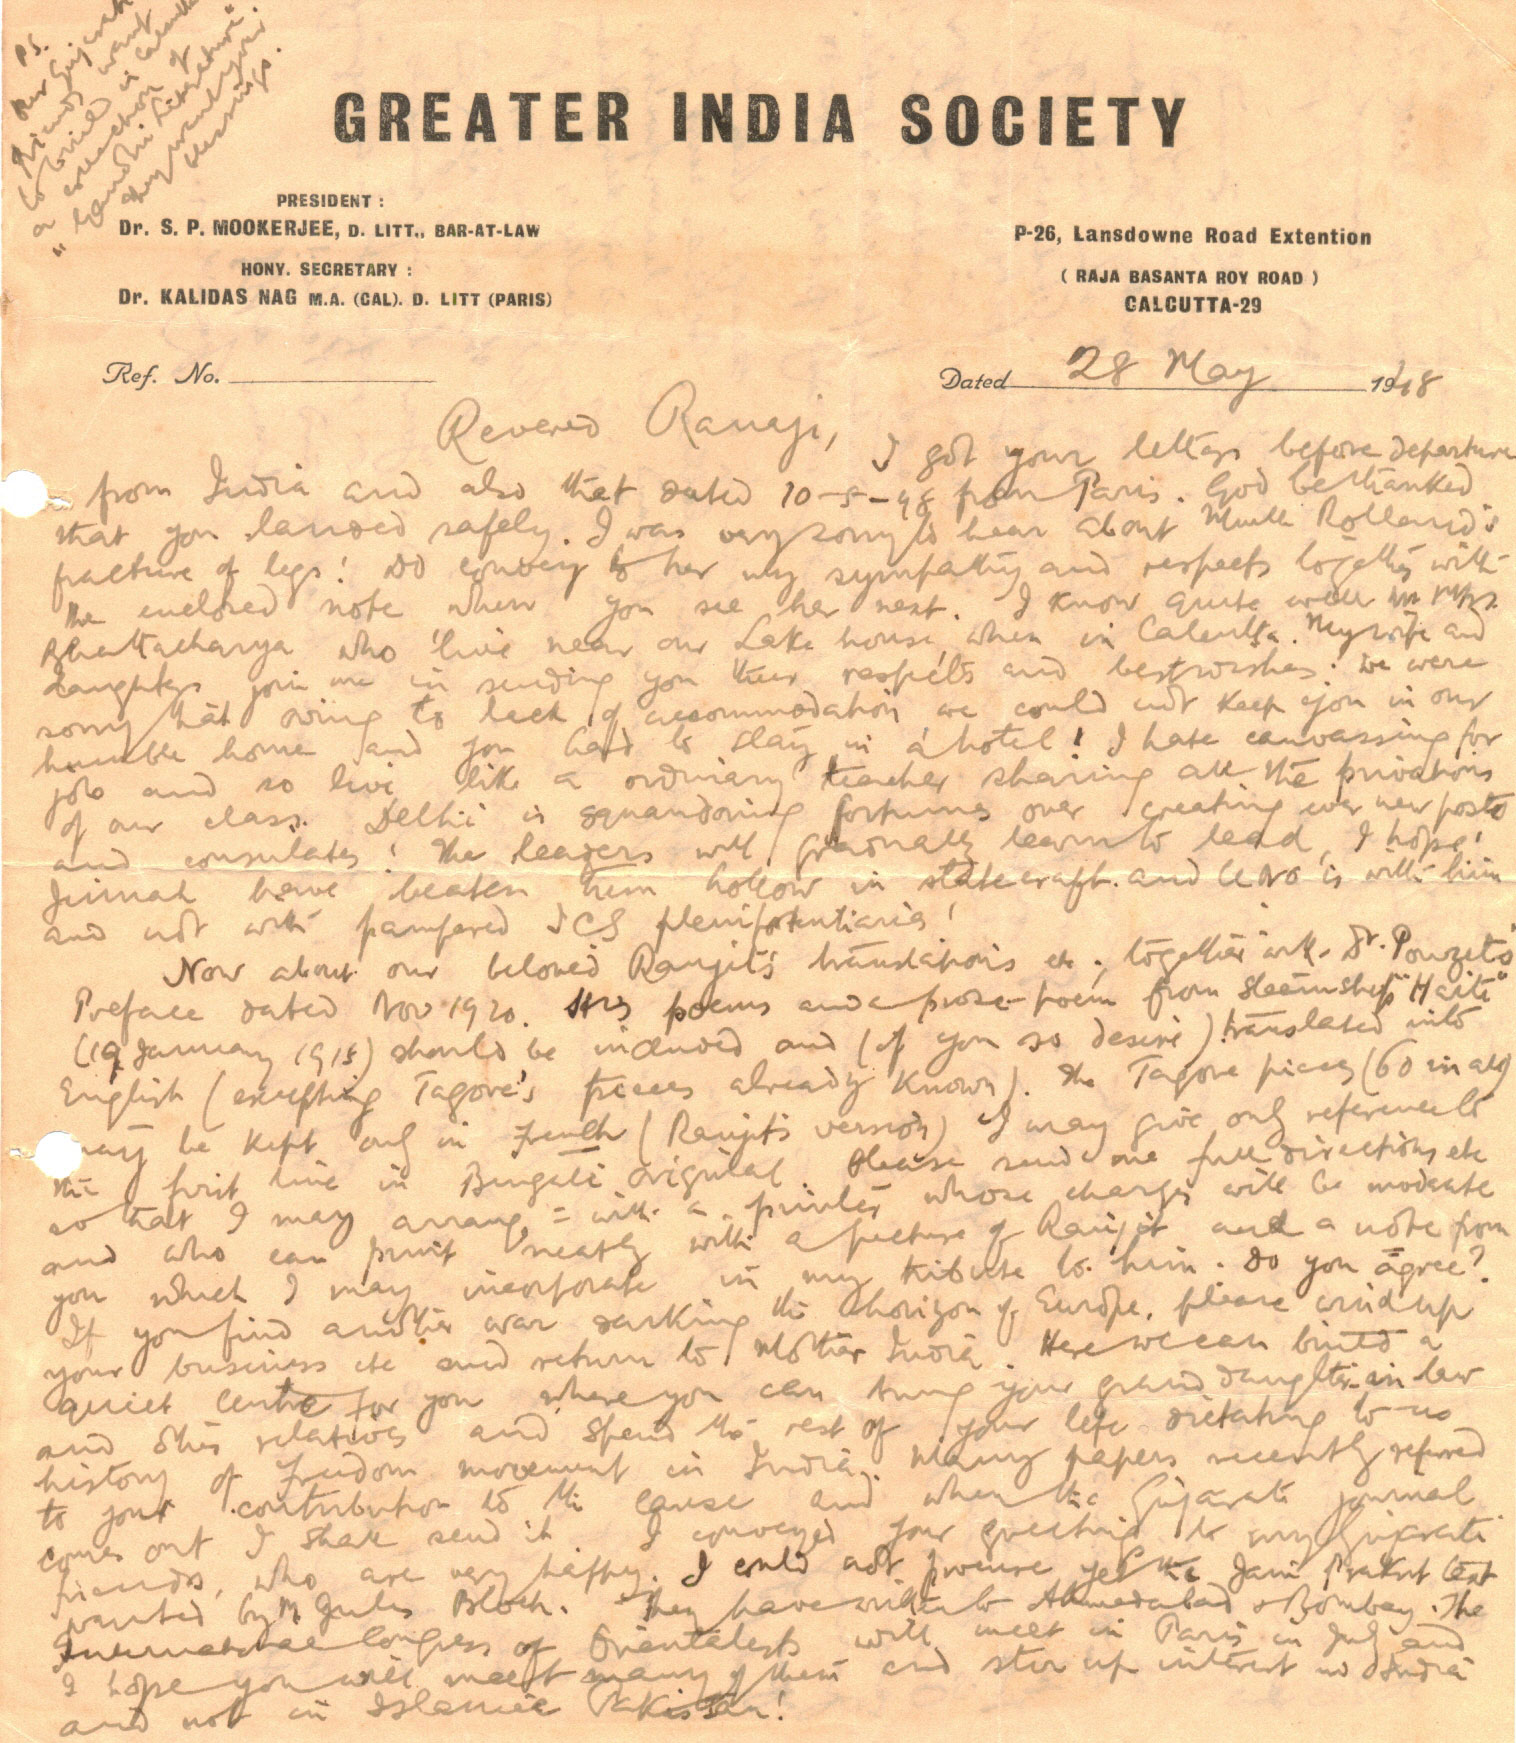 P.S.
Our Gujrati
friends want
to build in Calcutta
a collection of
"Gandhi Literature".
They want your
blessings.
GREATER INDIA SOCIETY
PRESIDENT :
Dr. S. P. MOOKERJEE, D. LITT., BAR-AT-LAW
HONY. SECRETARY :
Dr. KALIDAS NAG M.A. (CAL). D. LITT (PARIS)
P-26, Lansdowne Road Extention
( RAJA BASANTA ROY ROAD )
CALCUTTA-29
Ref. No.
Dated 28 May 1948
Revered Ranaji,
I got your letters before departure
from India and also that dated 10-5-48 from Paris. God be thanked
that you landed safely. I was very sorry to hear about Rolland's
fracture of legs! Do convey to her my sympathy and respects together with
the enclosed note when you see her next. I know quite well Mrs.
Bhattacharya who live near our Lake house, when in Calcutta. My wife and
daughters join me in sending you their respects and best wishes. We were
sorry that owing to lack of accommodation we could not keep you in our
humble home and you had to stay in a hotel! I hate canvassing for
job and so live like a ordinary teacher sharing all the privations
of our class. Delhi is squandering fortunes over creating ever new posts
and consulates! The leaders will gradually learn to lead, I hope!
Jinnah have beaten them hollow in statecraft. and UNO is with him
and not with pampered ICS plenipotentiaries!
Now about our beloved Ranjit's translations etc., together with Dr. Pouzet's
Preface dated Nov 1920. His poems and a prose-poem from Steamship "Haiti"
(19 January 1918) should be included and (if you so desire) translated into
English (excepting Tagore's pieces already known). The Tagore pieces (60 in all)
may be kept only in French (Ranjit's version) I may give only reference to
the first line in Bengali original. Please send me full directions etc
so that I may arrange with a printer whose charges will be moderate
and who can print neatly with a picture of Ranjit and a note from
you which I may incorporate in my tribute to him. Do you agree?
If you find another war darking the horizon of Europe, please wind up
your business etc and return to Mother India. Here we can build a
quiet Centre for you where you can bring your grand daughter-in-law
and other relatives and spend the rest of your life dictating to us
history of Freedom movement in India. Many papers recently referred
to your contribution to the cause and when the Gujarati journal
comes out I shall send it. I conveyed your greetings to my Gujarati
friends, who are very happy. I could not procure yet the Jain Prakrit text
wanted by M. Jules Bloch. They have written to Ahmedabad & Bombay. The
International Congress of Orientalists will meet in Paris in July and
I hope you will meet many of them and stir up interest in India
and not in Islamic Pakistan!